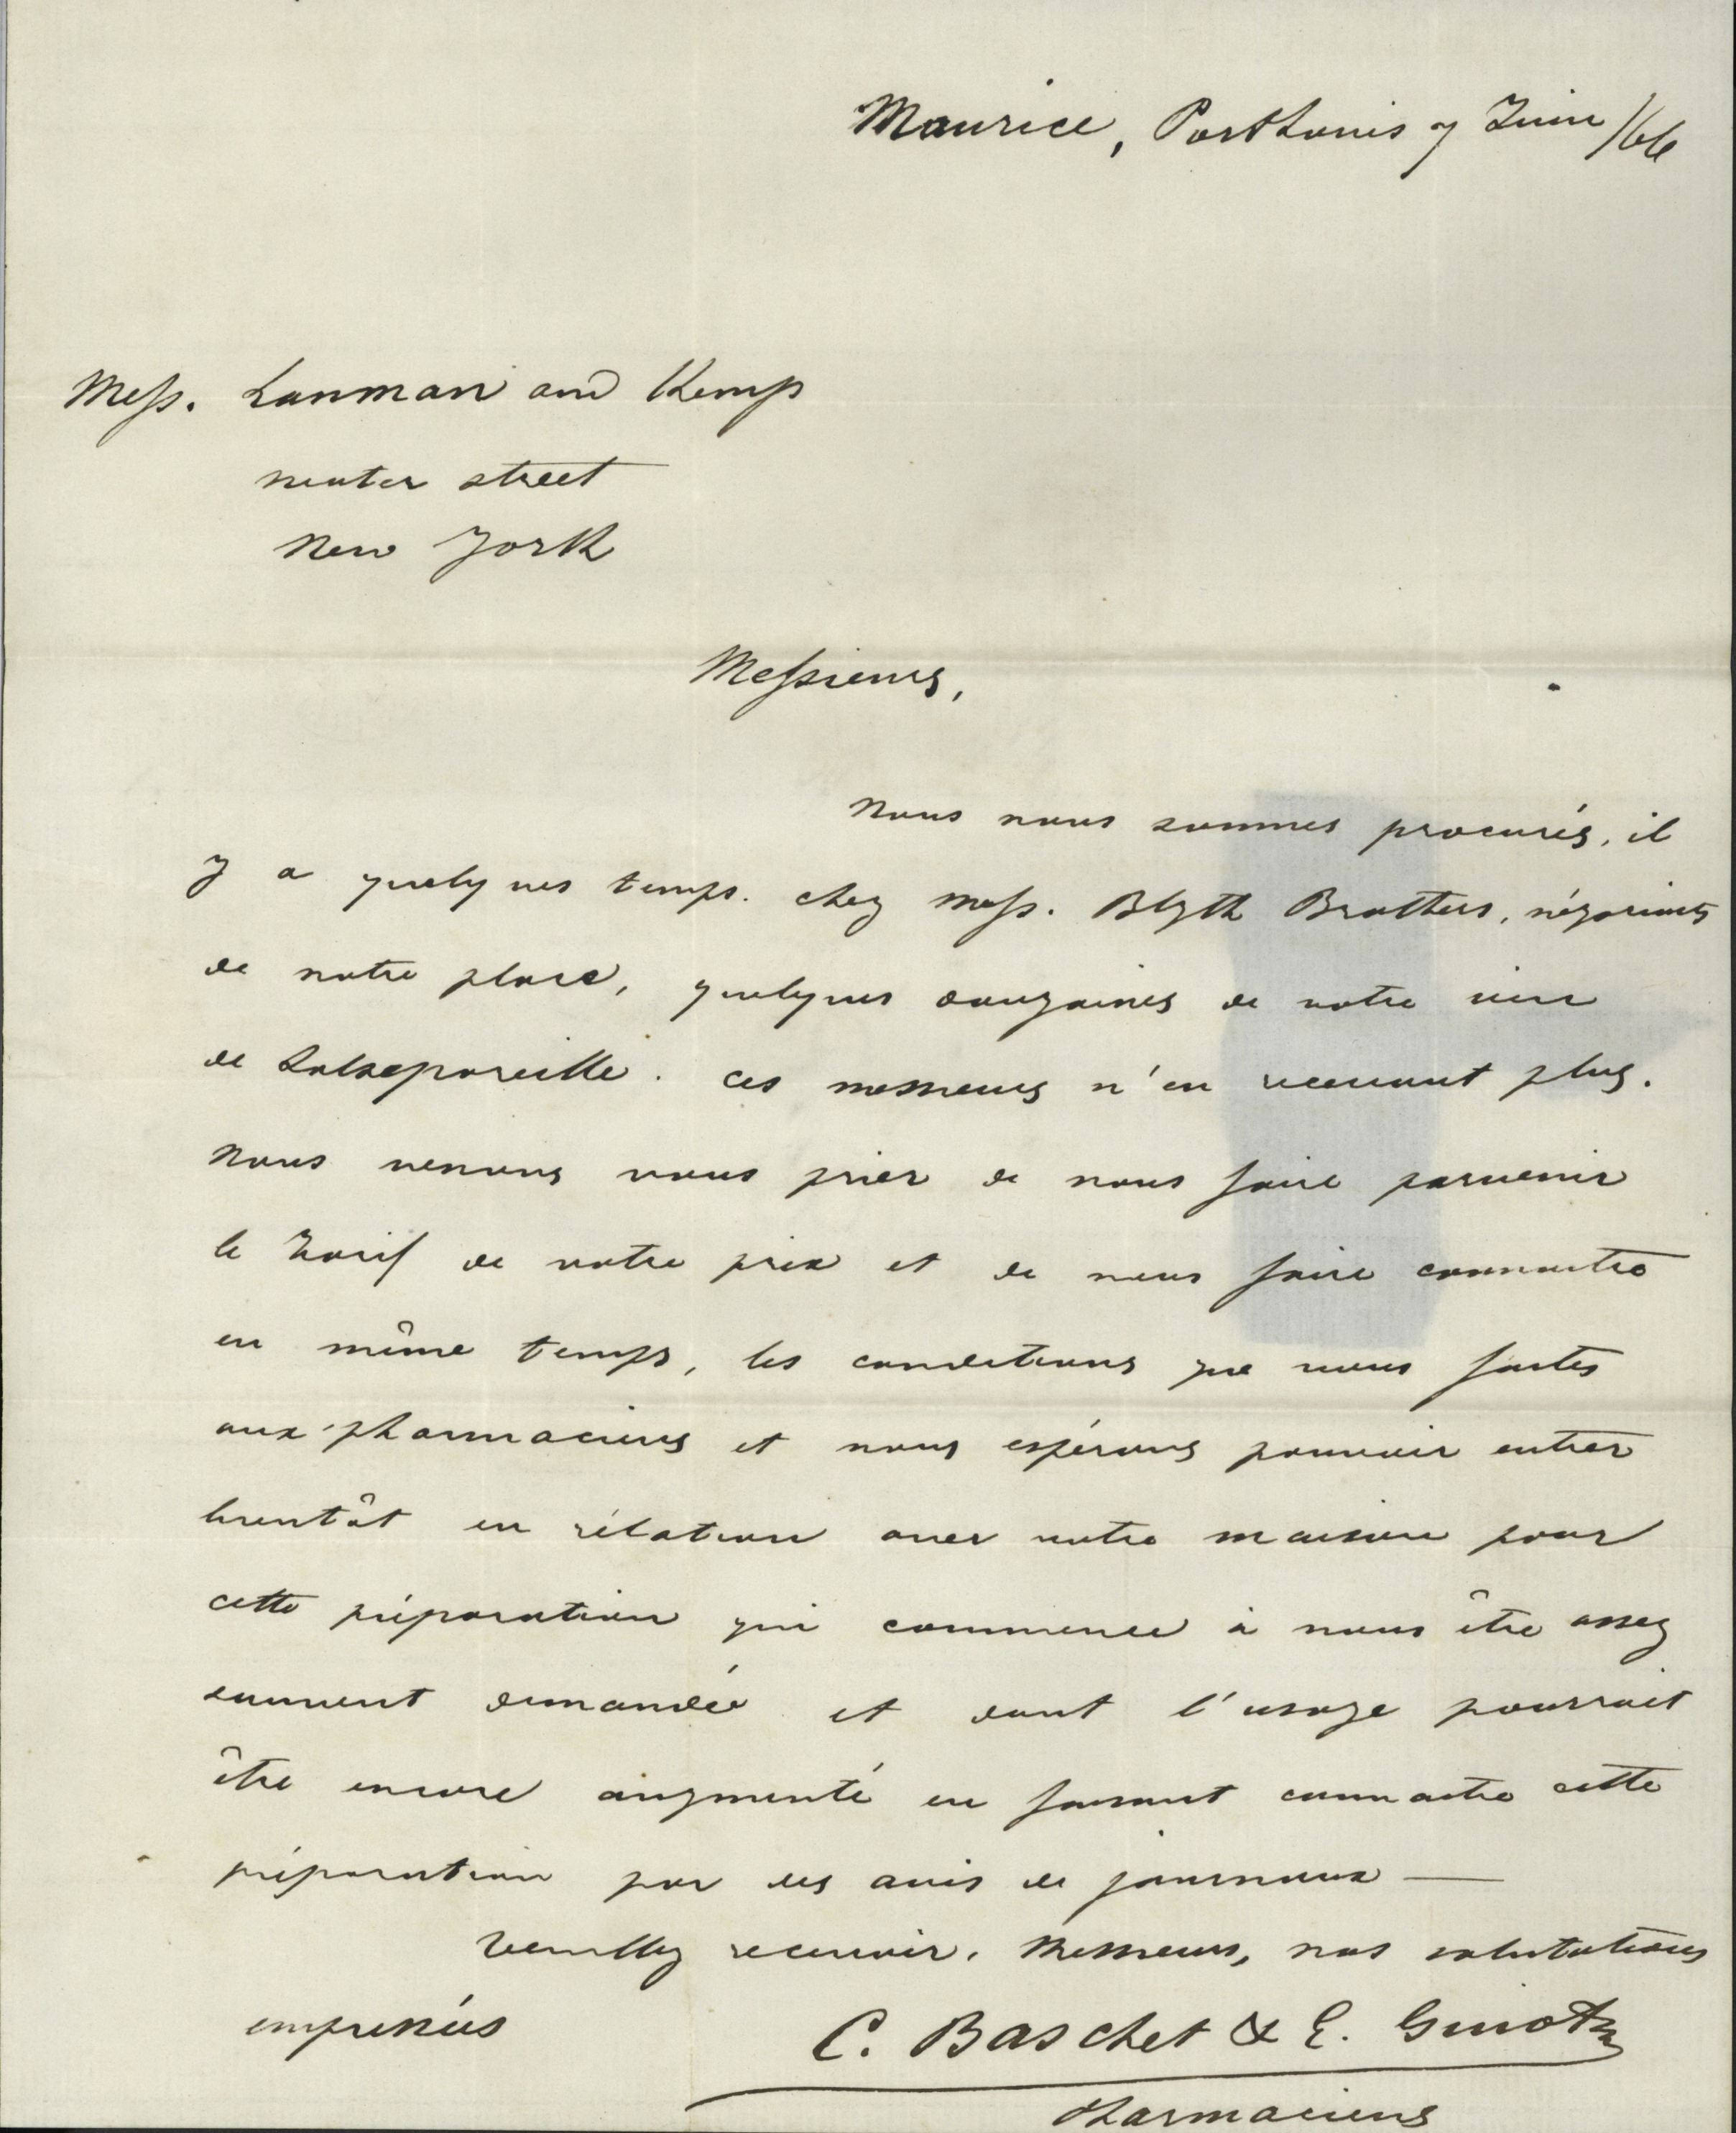 Maurice, Port Louis 7 Juin /66
Mess. Lanman and Kemp
water street
New York
Messieurs,
Nous nous sommes procurés, il
y a quelques temps. chez Mess. Blyth Brothers, négociants
de notre place, quelques douzaines de votre vin
de Salsepareille. Ces messieurs n'en recevant plus.
nous venons vous prier de nous faire parvenir
le Tarif de votre prix et de nous faire connaitre
en même temps, les conditions que vous faites
aux pharmaciens et nous espérons pouvoir entrer
bientôt en rélation avec votre maison pour
cette préparation qui commence à nous être assez
souvent demandée et dont l'usage pourrait
être encore augmenté en faisant connaitre cette
préparation par des avis de journaux —
Veuillez recevoir. Messieurs, nos salutations
empressées
C. Baschet & E. Guiot
Pharmaciens